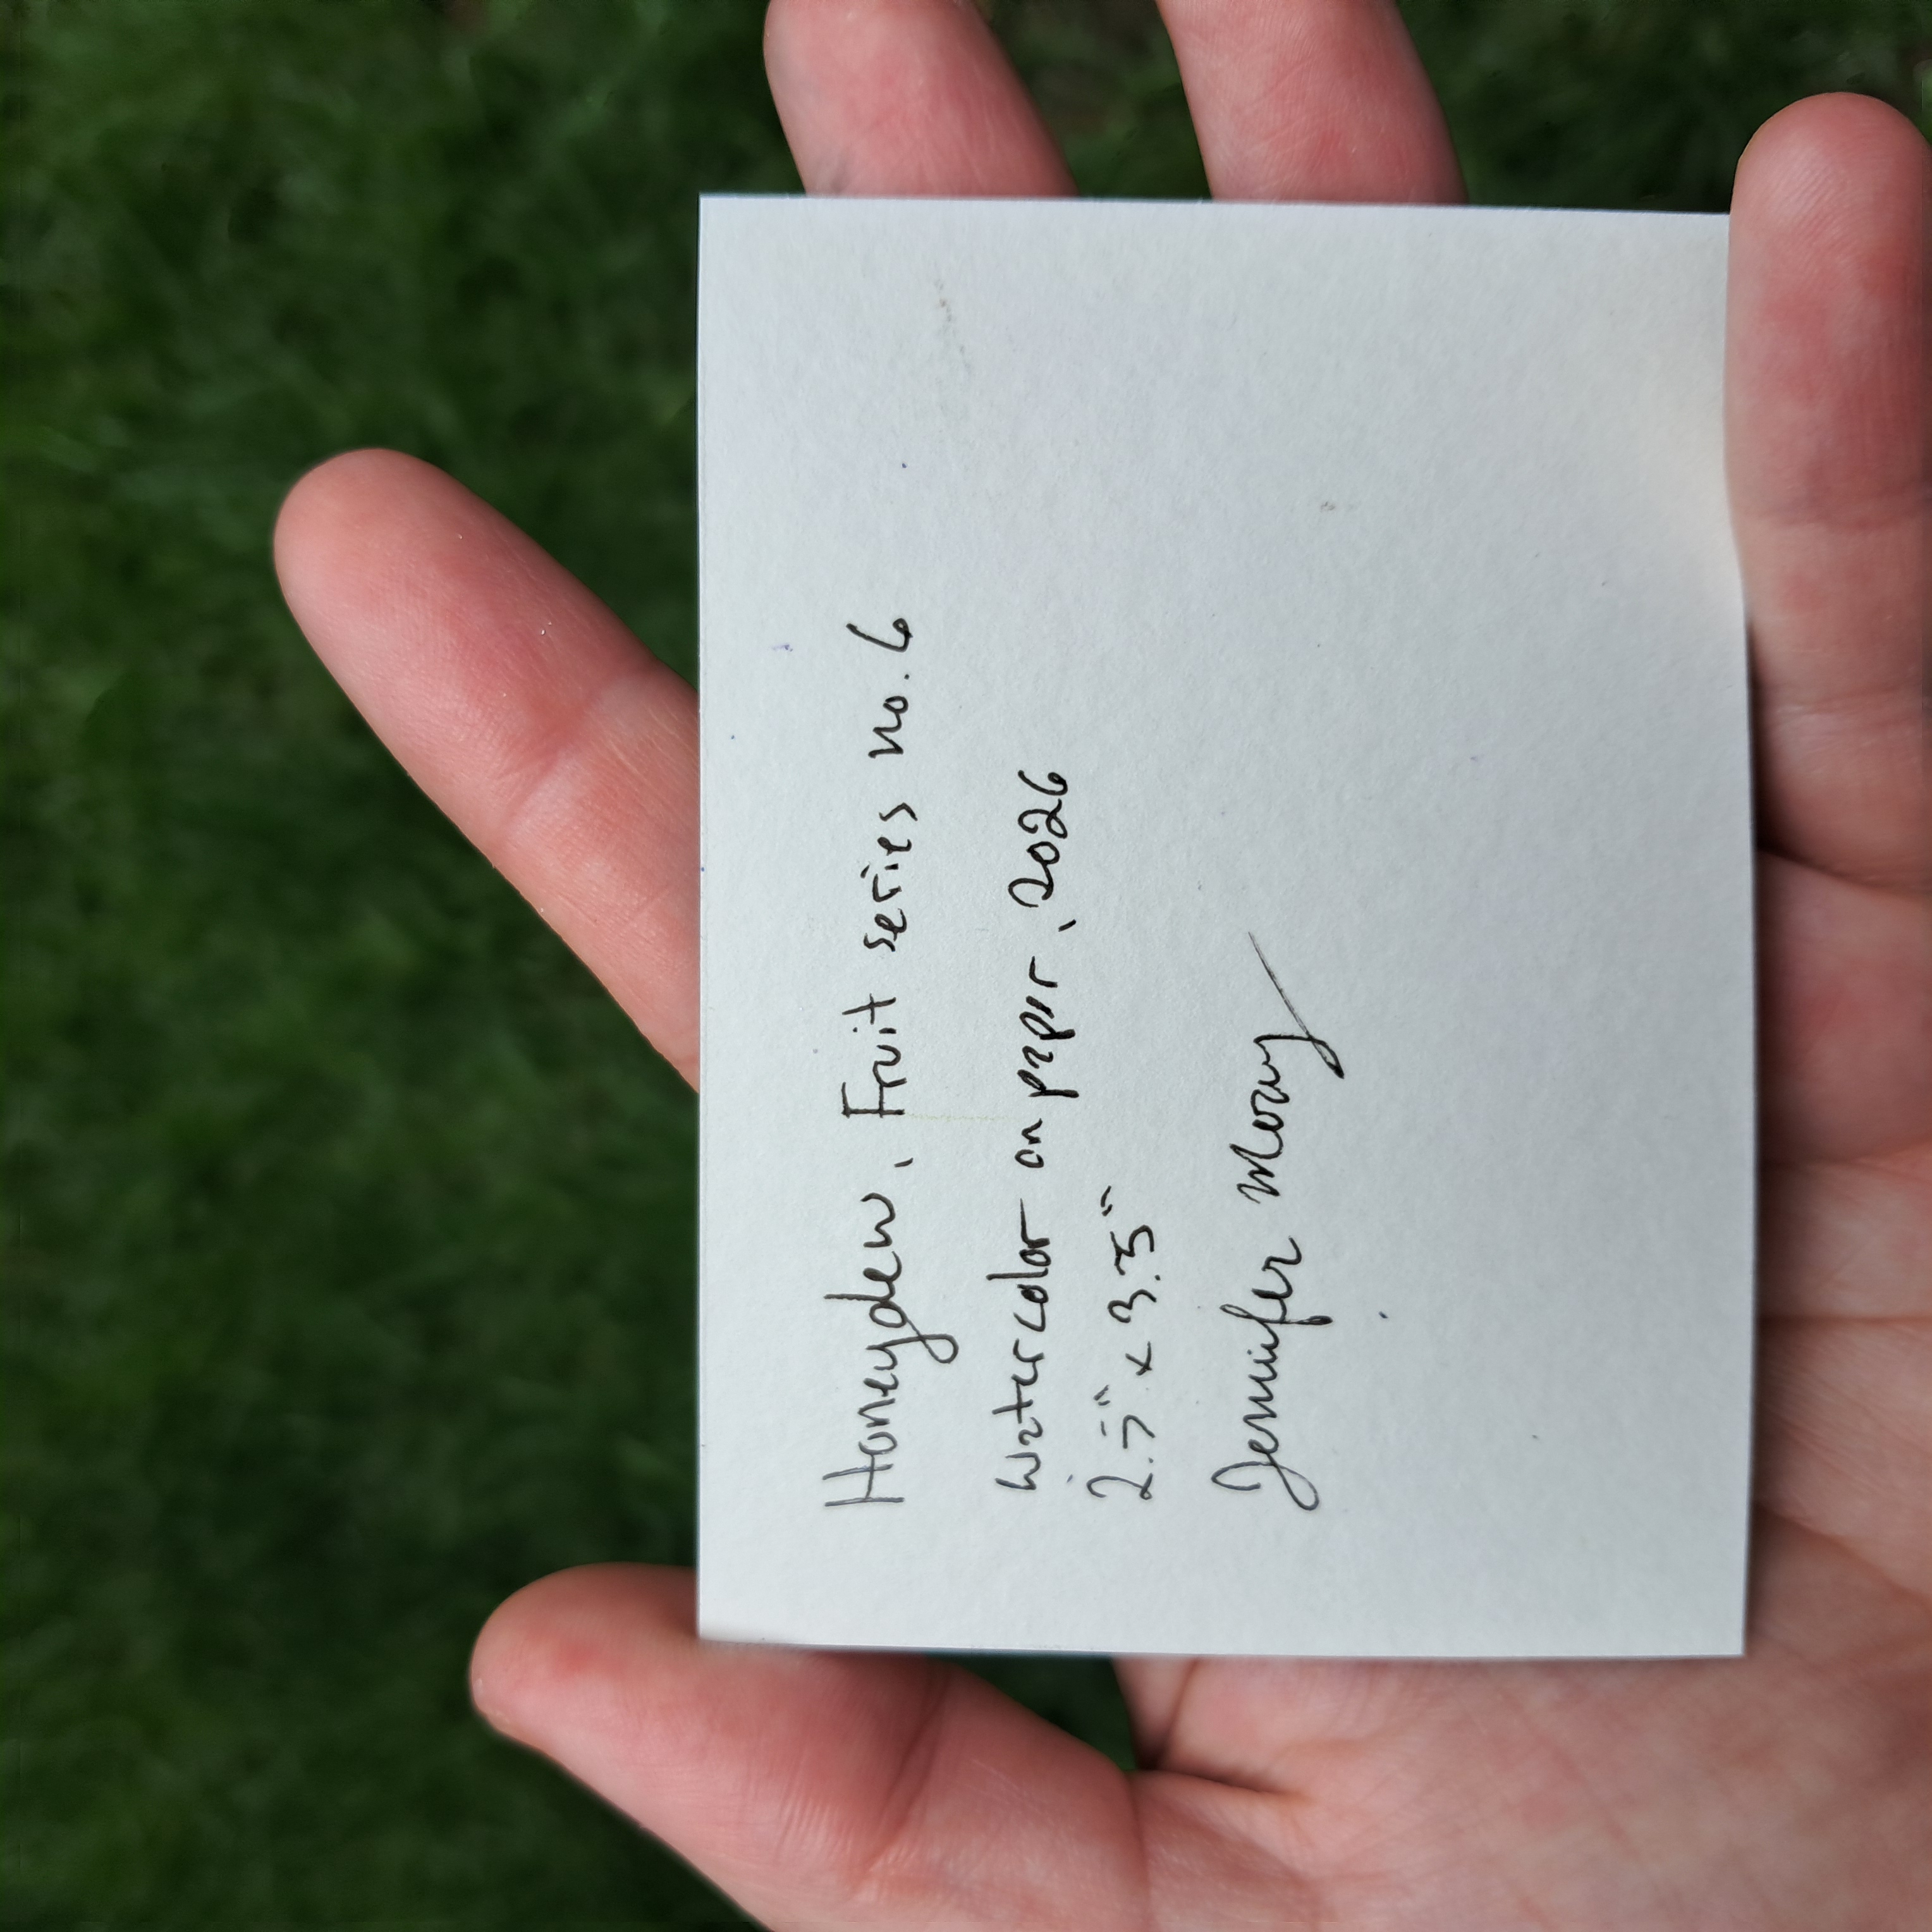 Honeydew, Fruit series no. 6
watercolor on paper, 2026
2.5" x 3.5"
Jennifer